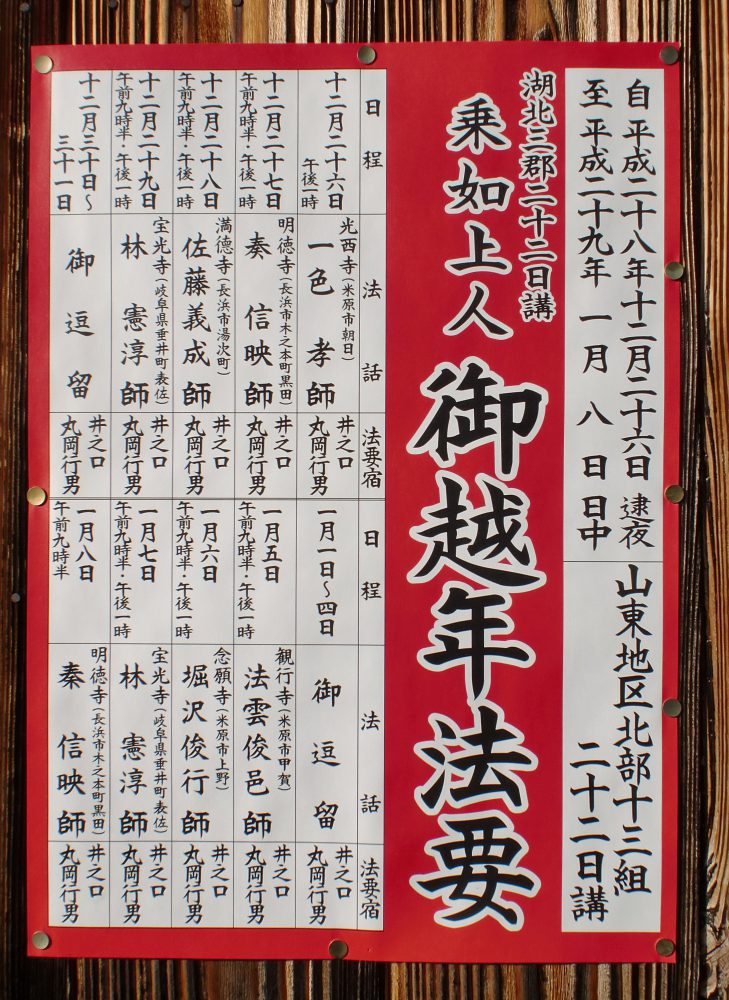 自 平成二十八年十二月二十六日 逮夜
至 平成二十九年 一月 八 日 日中
山東地区北部十三組
二十二日講
湖北三郡二十二日講
乗如上人 御越年法要
日程
法話
法要宿
十二月二十六日
午後一時
光西寺(米原市朝日)
一色 孝師
井之口
丸岡行男
十二月二十七日
午前九時半・午後一時
明徳寺(長浜市木之本町黒田)
奏 信映師
井之口
丸岡行男
十二月二十八日
午前九時半・午後一時
満徳寺(長浜市湯次町)
佐藤義成師
井之口
丸岡行男
十二月二十九日
午前九時半・午後一時
宝光寺(岐阜県垂井町表佐)
林 憲淳師
井之口
丸岡行男
十二月三十日〜
三十一日
御逗留
井之口
丸岡行男
日程
法話
法要宿
一月一日〜四日
御逗留
井之口
丸岡行男
一月五日
午前九時半・午後一時
観行寺(米原市甲賀)
法雲俊邑師
井之口
丸岡行男
一月六日
午前九時半・午後一時
念願寺(米原市上野)
堀沢俊行師
井之口
丸岡行男
一月七日
午前九時半・午後一時
宝光寺(岐阜県垂井町表佐)
林 憲淳師
井之口
丸岡行男
一月八日
午前九時半
明徳寺(長浜市木之本町黒田)
秦 信映師
井之口
丸岡行男